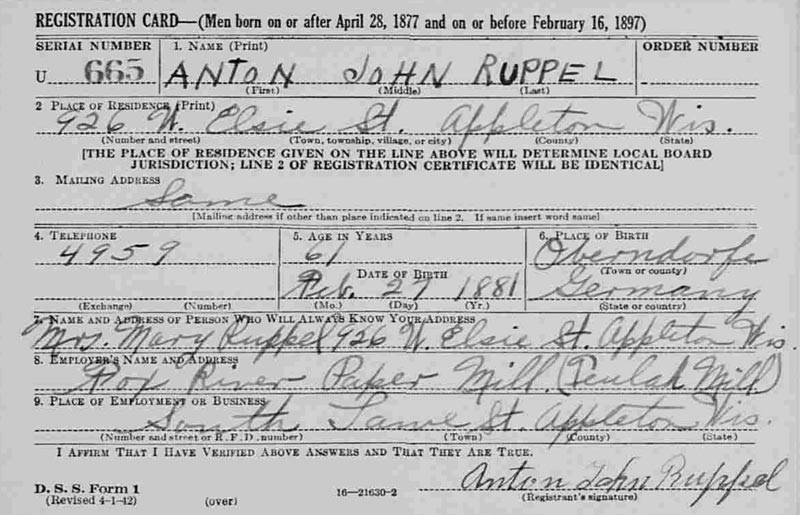 REGISTRATION CARD—(Men born on or after April 28, 1877 and on or before February 16, 1897)
SERIAL NUMBER 1. NAME (Print) ORDER NUMBER
U 665 ANTON JOHN RUPPEL
(First) (Middle) (Last)
2 PLACE OF RESIDENCE (Print)
926 W. Elsie St. Appleton Wis.
(Number and street) (Town, township, village, or city) (County) (State)
[THE PLACE OF RESIDENCE GIVEN ON THE LINE ABOVE WILL DETERMINE LOCAL BOARD
JURISDICTION; LINE 2 OF REGISTRATION CERTIFICATE WILL BE IDENTICAL]
3. MAILING ADDRESS
Same
[Mailing address if other than place indicated on line 2. If same insert word same]
4. TELEPHONE 5. AGE IN YEARS 6. PLACE OF BIRTH
4959 61 Oberndorfe
DATE OF BIRTH (Town or county)
Feb. 27 1881 Germany
(Exchange) (Number) (Mo.) (Day) (Yr.) (State or country)
7. NAME AND ADDRESS OF PERSON WHO WILL ALWAYS KNOW YOUR ADDRESS
Mrs. Mary Ruppel 926 W. Elsie St. Appleton Wis.
8. EMPLOYER'S NAME AND ADDRESS
Fox River Paper Mill. (Mill)
9. PLACE OF EMPLOYMENT OR BUSINESS
South St. Appleton Wis.
(Number and street or R. F. D. number) (Town) (County) (State)
I AFFIRM THAT I HAVE VERIFIED ABOVE ANSWERS AND THAT THEY ARE TRUE.
Anton John Ruppel
D. S. S. Form 1
(Revised 4-1-42) (over) 16—21630-2 (Registrant's signature)